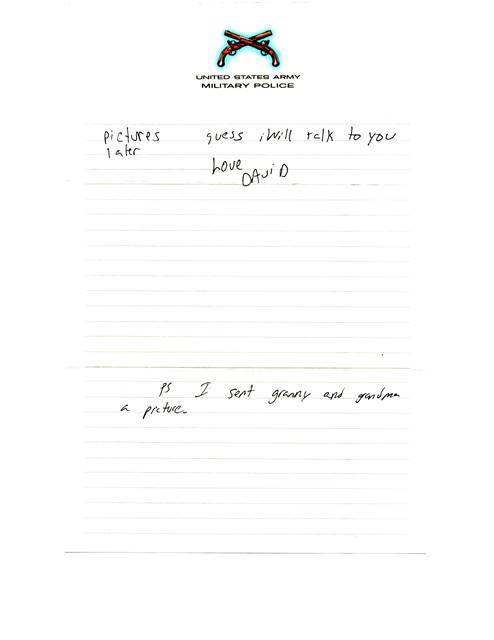 UNITED STATES ARMY
MILITARY POLICE
pictures guess i will talk to you
later
Love
DAViD
PS I sent granny and grandma
a picture.